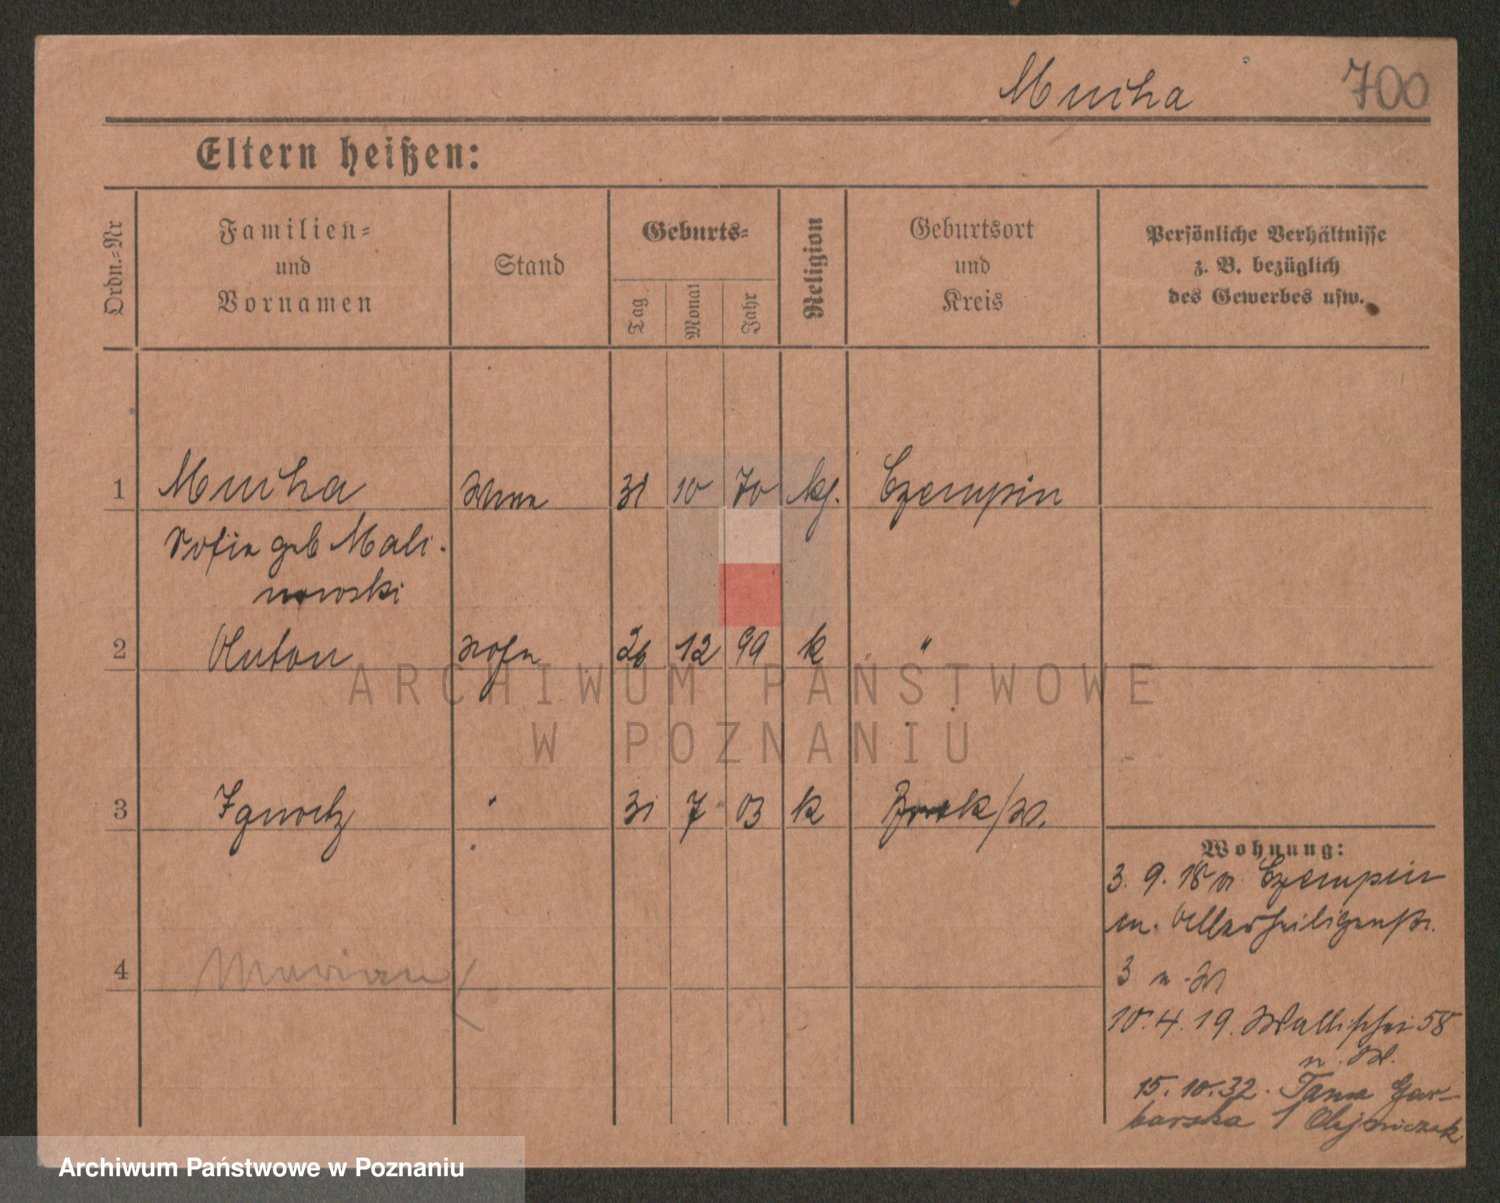 Mucha 700
Eltern heißen:
Ordn.-Nr
Familien-
und
Vornamen
Stand
Geburts-
Tag
Monat
Jahr
Religion
Geburtsort
und
Kreis
Persönliche Verhältnisse
z. B. bezüglich
des Gewerbes usw.
1 Mucha 31 10 70 kg. Czempin
Sofie geb Mali-
nowski
2 Anton Sohn 26 12 99 k "
3 Ignatz " 31 7 03 k
4 Marian
Wohnung:
3. 9. 18 v. Czempin
n. Allerheiligenstr.
3
10. 4. 19. Wallischei 58
15. 10. 32. Tama Gar-
barska 1 Olejniczak
ARCHIWUM PAŃSTWOWE
W POZNANIU
Archiwum Państwowe w Poznaniu